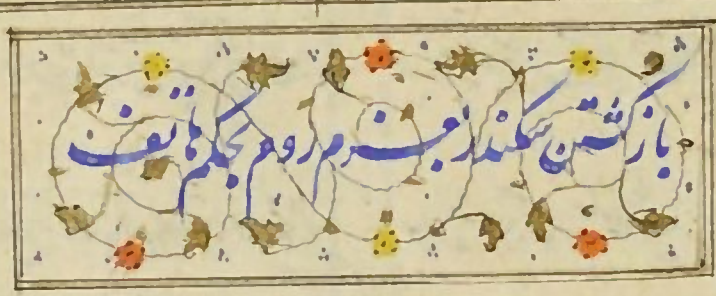 بازگشتن سکندر بعزم روم بحکم هاتف